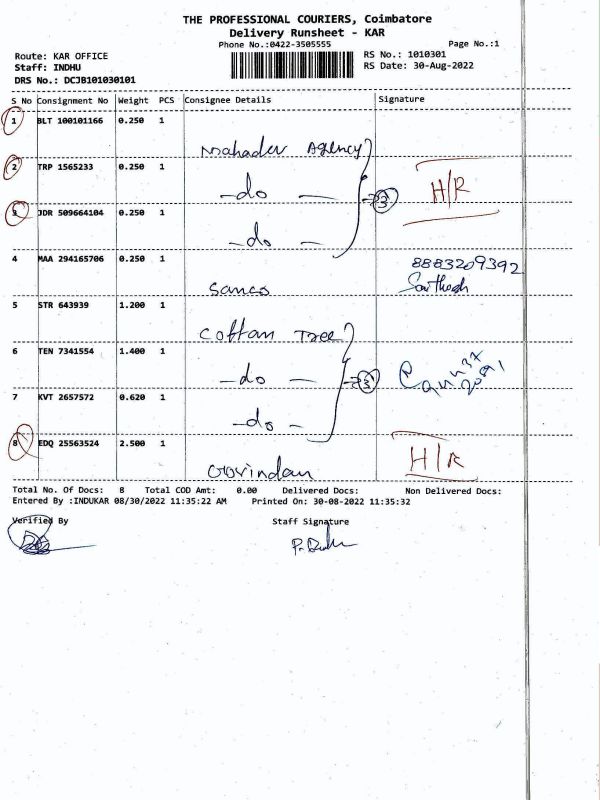 THE PROFESSIONAL COURIERS, Coimbatore
Delivery Runsheet - KAR
Phone No.:0422-3505555 Page No.:1
Route: KAR OFFICE RS No.: 1010301
Staff: INDHU RS Date: 30-Aug-2022
DRS No.: DCJB101030101
S No Consignment No Weight PCS Consignee Details Signature
1 BLT 100101166 0.250 1
Mahadev Agency
2 TRP 1565233 0.250 1
-do - 3 H/R
3 JDR 509664104 0.250 1
-do -
4 MAA 294165706 0.250 1 8883209392
Sanco
5 STR 643939 1.200 1
Cottan Tree
6 TEN 7341554 1.400 1
-do - 3
7 KVT 2657572 0.620 1
-do -
8 EDQ 25563524 2.500 1
Govindan H/R
Total No. Of Docs: 8 Total COD Amt: 0.00 Delivered Docs: Non Delivered Docs:
Entered By :INDUKAR 08/30/2022 11:35:22 AM Printed On: 30-08-2022 11:35:32
Verified By Staff Signature